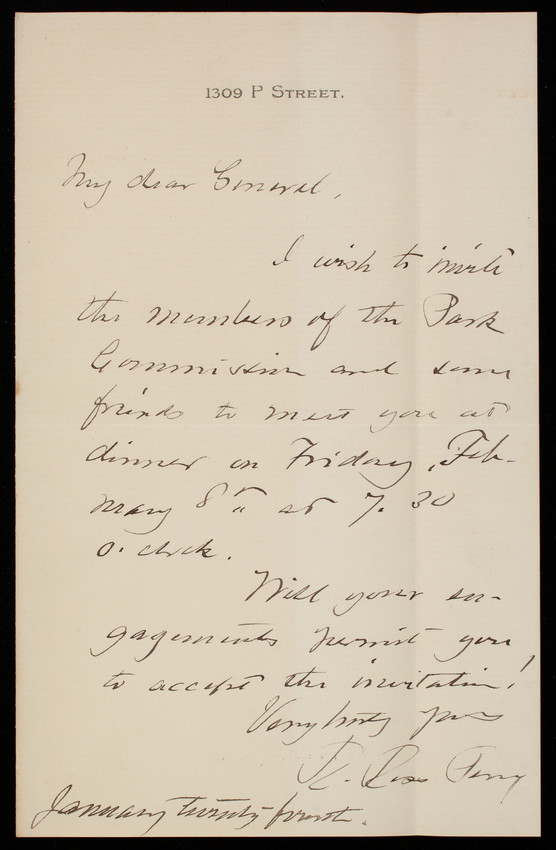 1309 P Street.
My dear General,
I wish to invite
the members of the Park
Commission and some
friends to meet you at
dinner on Friday, Feb-
ruary 8th at 7.30
o'clock.
Will your en-
gagements permit you
to accept the invitation?
Very truly yours
R. Ross Perry
January twenty-fourth.